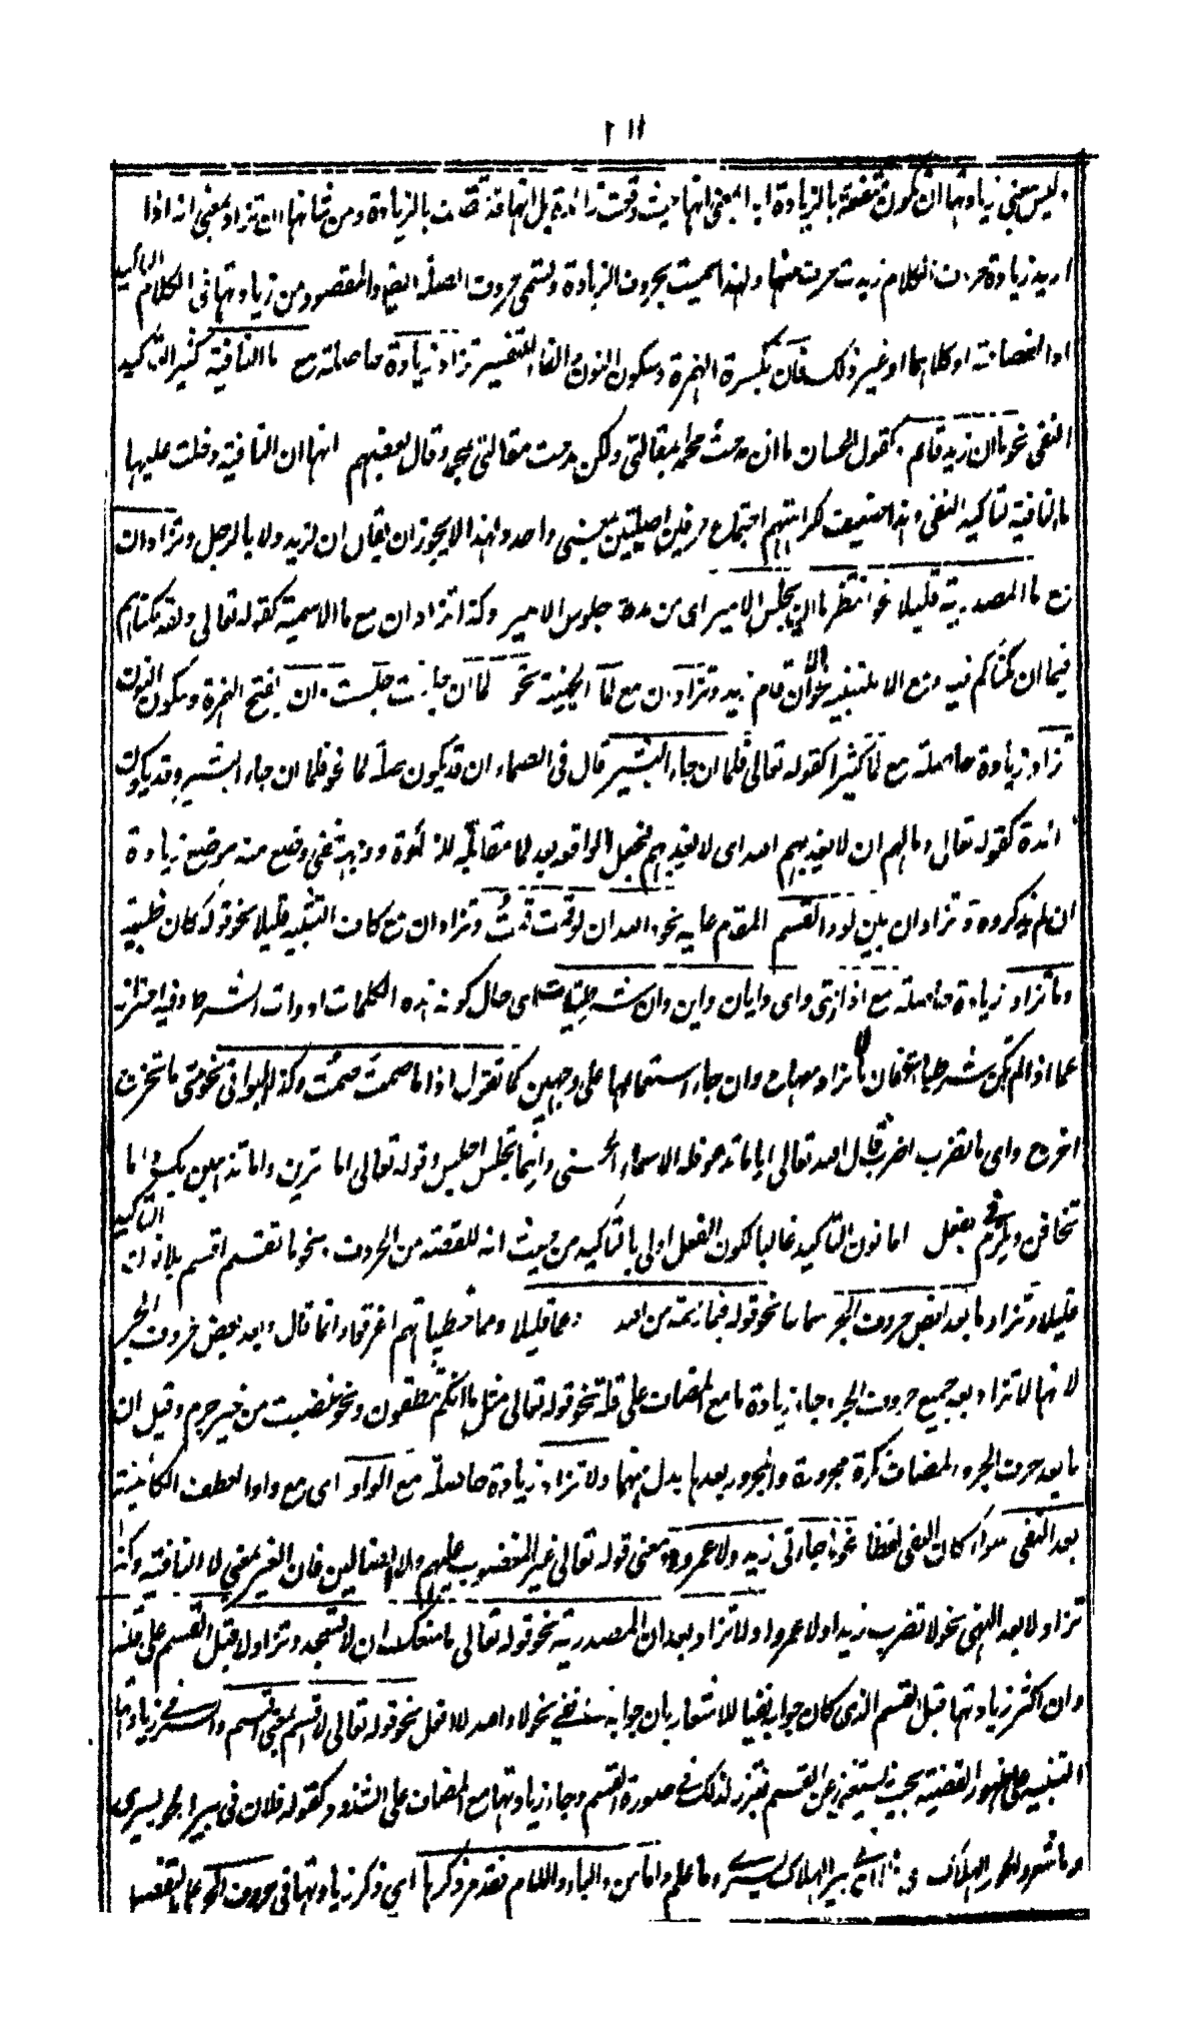 ٢١١
وليس معنى زيادتها ان تكون متصفة بالزيادة ابدا بمعنى انها حيث وقعت زائدة بل انها قد تقع بالزيادة ومن شانها ان تزاد بمعنى انه اذا
اريد زيادة حرف الكلام زيدت حرف منها ولهذا سميت بحروف الزيادة وتسمى حروف الصلة ايضا والمقصود من زيادتها فى الكلام التاكيد
او الفصاحة او كلاهما او غير ذلك فان بكسرة الهمزة وسكون النون الفاء للتفسير تزاد زيادة حاصلة مع ما النافية كثيرا لتاكيد
النفى نحو ما ان زيد قائم كقول الحسان ما ان مدحت محمدا بمقالتى ولكن مدحت مقالتى بمحمد وقال بعضهم انها ان النافية دخلت عليها
ما النافية لتاكيد النفى وهذا ضعيف لكراهتهم اجتماع حرفين اصليتين بمعنى واحد ولهذا لا يجوز ان يقال ان لزيد ولا يا الرجل وتزاد ان
مع ما المصدرية قليلا نحو انتظر ما ان يجلس الامير اى من مدة جلوس الامير وكذا تزاد ان مع ما الاسمية كقوله تعالى ولقد مكناهم
فيما ان مكناكم فيه ومع الا للتنبيه نحو الا ان قام زيد وتزاد ان مع لما الحينية نحو لما ان جلست جلست وان بفتح الهمزة وسكون النون
تزاد زيادة حاصلة مع لما كثيرا كقوله تعالى فلما ان جاء البشير قال فى الصحاح ان قد يكون صلة لما نحو فلما ان جاء البشير وقد يكون
زائدة كقوله تعالى وما لهم ان لا يعذبهم الله اى لا يعذبهم
ان لم يذكروه وتزاد ان بين لو والقسم المقدم عليه نحو والله ان لو قمت قمت وتزاد ان مع كاف التشبيه قليلا نحو قوله كان ظبية
وما تزاد زيادة حاصلة مع اذا ومتى واى وايان واين وان شرطيات اى حال كون هذه الكلمات ادوات الشرط وفيه احتراز
عما اذا لم يكن شرطيا فان ما لا تزاد معها وان جاء استعمالها على وجهين كما تقول اذا ما صمت صمت وكذا البواقى نحو متى ما تخرج
اخرج واى ما تضرب اضرب قال الله تعالى ايا ما تدعوا فله الاسماء الحسنى واينما تجلس اجلس وقوله تعالى اما ترين واما تذهبن بك واما
تخافن ويلزم فى فعل اما نون التاكيد غالبا لكون الفعل اولى بالتاكيد من حيث انه للقصد من الحروف نحو ما تقسم اقسم بلا نون التاكيد
قليلا وتزاد ما بعد بعض حروف الجر سماعا نحو قوله فبما رحمة من الله وعما قليل ومما خطيئاتهم اغرقوا وانما قال بعد بعض حروف الجر
لانها لا تزاد بعد جميع حروف الجر وجاء زيادة ما مع المضاف على قلة نحو قوله تعالى مثل ما انكم تنطقون ونحو غضبت من غير جرم وقيل ان
ما بعد حرف الجر والمضاف نكرة مجرورة والمجرور بعدها بدل منها ولا تزاد زيادة حاصلة مع الواو اى مع واو العطف الكائنة
بعد النفى سواء كان النفى لفظا نحو ما جاءنى زيد ولا عمرو او معنى قوله تعالى غير المغضوب عليهم ولا الضالين فان الغير بمعنى لا النافية وكذا
تزاد لا بعد النهى نحو لا تضرب زيدا ولا عمروا ولا تزاد بعد ان المصدرية نحو قوله تعالى ما منعك ان لا تسجد وتزاد لا قبل القسم على قلة
وان اكثر زيادتها قبل القسم الذى كان جوابه نفيا للاشعار بان جوابه منفى نحو لا والله لا افعل نحو قوله تعالى لا اقسم بمعنى اقسم والسر فى زيادتها
التنبيه على ظهور القضية بحيث يستغنى عن القسم فتبرز لذلك فى صورة القسم وجاء زيادتها مع المضاف على الشذوذ كقوله فلان فى بير لا حور سرى
وما شعر والحور الهلاك اى فى بير الهلاك سرى وما علم واما من والباء واللام فقد مر ذكرها اى ذكر زيادتها فى حروف الجر على التفصيل